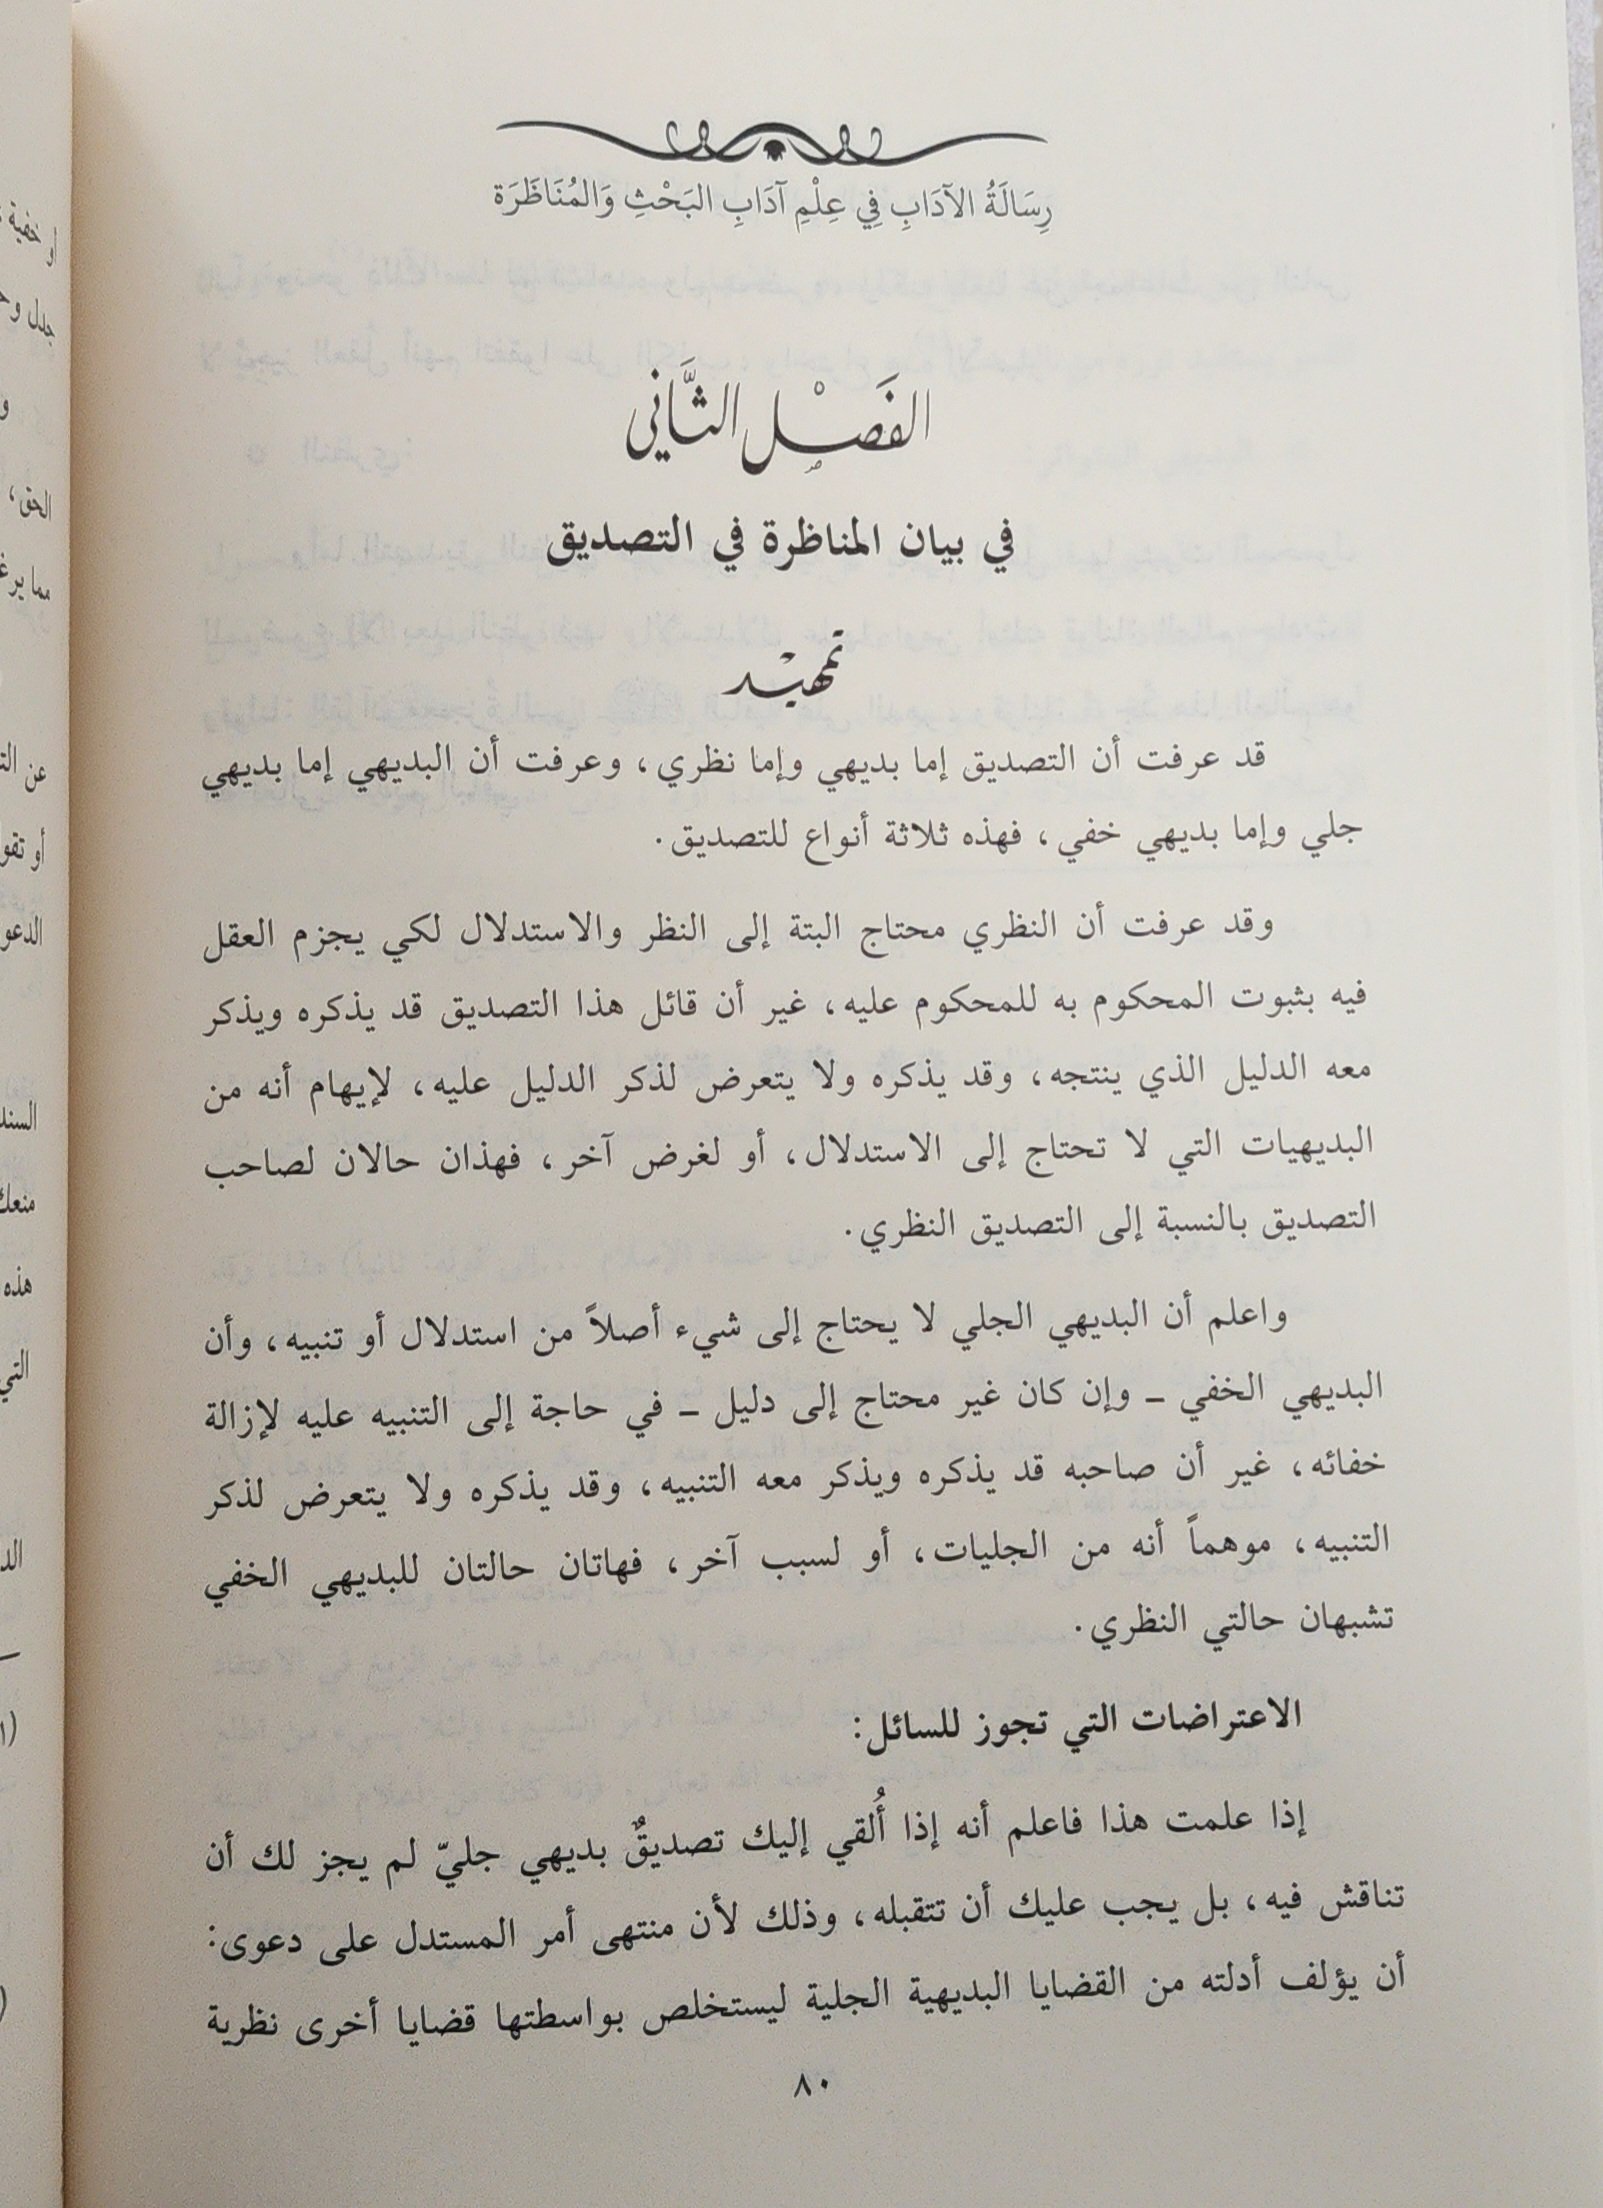 رِسَالَةُ الآدَابِ فِي عِلْمِ آدَابِ البَحْثِ وَالمُنَاظَرَة
الفَصْل الثَّاني
في بيان المناظرة في التصديق
تمهْيد
قد عرفت أن التصديق إما بديهي وإما نظري، وعرفت أن البديهي إما بديهي
جلي وإما بديهي خفي، فهذه ثلاثة أنواع للتصديق.
وقد عرفت أن النظري محتاج البتة إلى النظر والاستدلال لكي يجزم العقل
فيه بثبوت المحكوم به للمحكوم عليه، غير أن قائل هذا التصديق قد يذكره ويذكر
معه الدليل الذي ينتجه، وقد يذكره ولا يتعرض لذكر الدليل عليه، لإيهام أنه من
البديهيات التي لا تحتاج إلى الاستدلال، أو لغرض آخر، فهذان حالان لصاحب
التصديق بالنسبة إلى التصديق النظري.
واعلم أن البديهي الجلي لا يحتاج إلى شيء أصلاً من استدلال أو تنبيه، وأن
البديهي الخفي ـ وإن كان غير محتاج إلى دليل ـ في حاجة إلى التنبيه عليه لإزالة
خفائه، غير أن صاحبه قد يذكره ويذكر معه التنبيه، وقد يذكره ولا يتعرض لذكر
التنبيه، موهماً أنه من الجليات، أو لسبب آخر، فهاتان حالتان للبديهي الخفي
تشبهان حالتي النظري.
الاعتراضات التي تجوز للسائل:
إذا علمت هذا فاعلم أنه إذا أُلقي إليك تصديقٌ بديهي جليّ لم يجز لك أن
تناقش فيه، بل يجب عليك أن تتقبله، وذلك لأن منتهى أمر المستدل على دعوى:
أن يؤلف أدلته من القضايا البديهية الجلية ليستخلص بواسطتها قضايا أخرى نظرية
٨٠
أو خفية
جدل
و
الحق،
عن
السند
هذه
التي